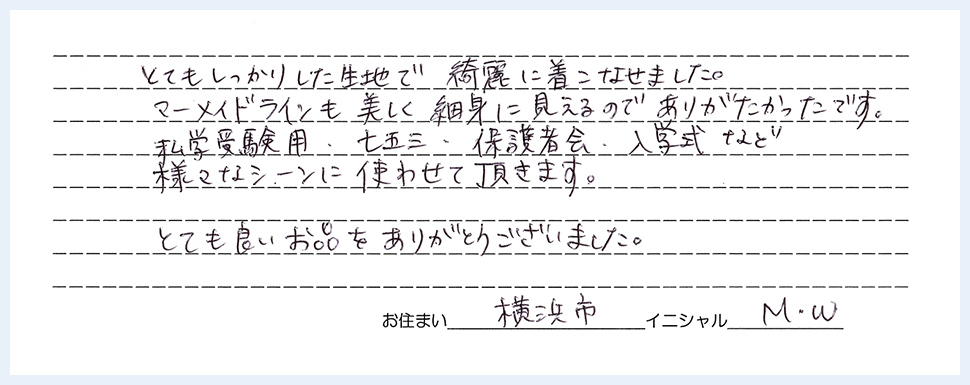 とてもしっかりした生地で 綺麗に着こなせました。
マーメイドラインも 美しく 細身に見えるので ありがたかったです。
私学受験用・七五三・保護者会・入学式 など
様々なシーンに使わせて頂きます。
とても良いお品を ありがとうございました。
お住まい 横浜市 イニシャル M・W